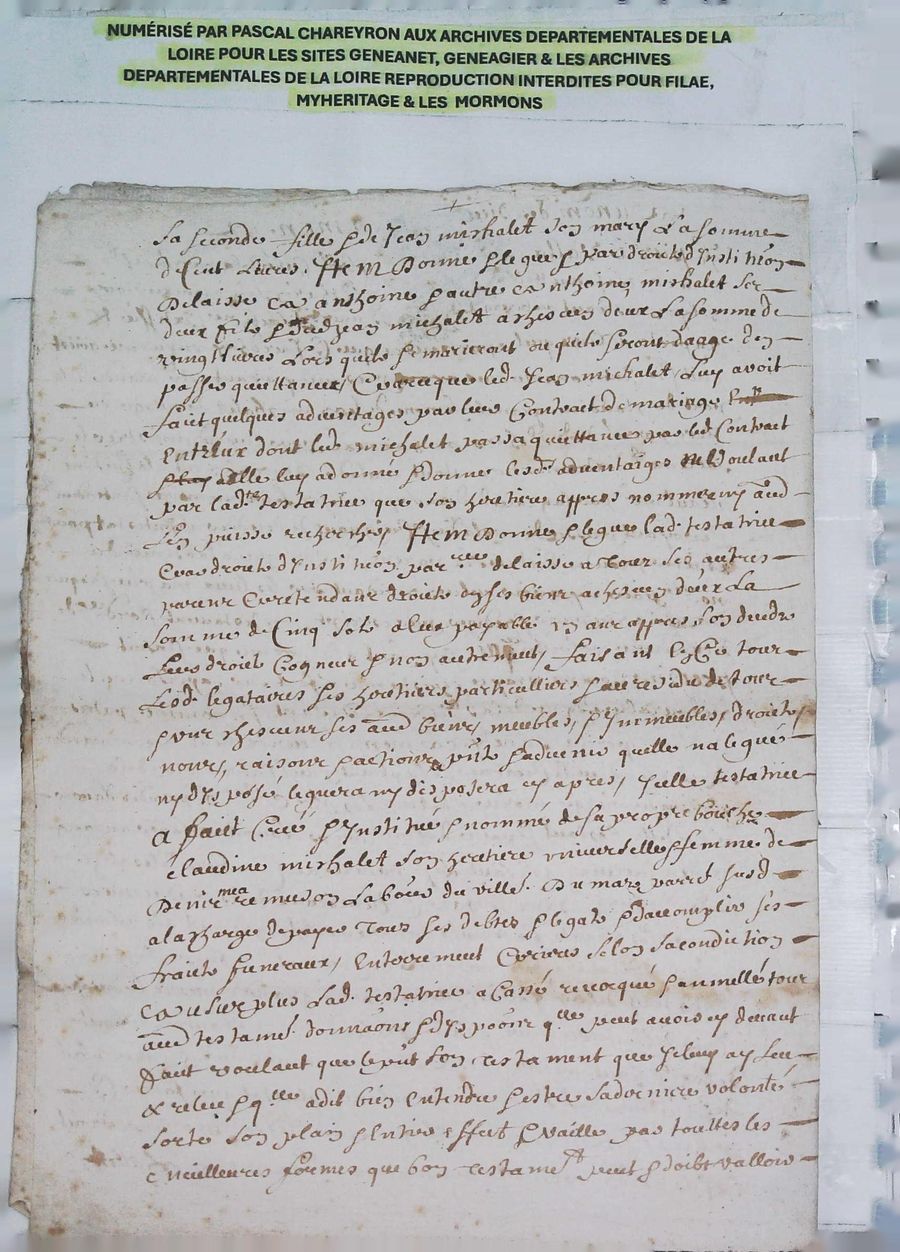 NUMÉRISÉ PAR PASCAL CHAREYRON AUX ARCHIVES DEPARTEMENTALES DE LA
LOIRE POUR LES SITES GENEANET, GENEAGIER & LES ARCHIVES
DEPARTEMENTALES DE LA LOIRE REPRODUCTION INTERDITES POUR FILAE,
MYHERITAGE & LES MORMONS
sa seconde fille & de Jean mishalet son mary La somme
de Cent Livres, Item Donne & legue & par droict d'Institu̅on
Delaisse a anthoine & autre anthoine mishalet ses
deux filz & dud Jean michalet a chescung deux La somme de
vingt livres Lors quilz se marieront ou quilz seront daage den
passer quittance, Et parce que led. Jean michalet Luy avoit
fait quelques adventages par leur Contract de mariage
Entreux dont led michalet passa quittance par led Contract
& elle luy a donné & donne lesd. adventaiges ne Voulant
par lad.te testatrice que son heretiere appres nommee ny aud
Len puisse rechercher Item Donne & legue lad. testatrice
& par droict d'Institu̅on par.lle delaisse a Tous ses autres
parens pretendans droictz en ses biens a chescung deux La
somme de Cinq solz a Eux payable un an appres son deedz
Leur droict Cogneu & non autrement, faisant les tous
Lesd. legataires ses heretiers particulliers & au residu de tous
& pour chescuns ses aud biens, meubles, & Immeubles, droictz,
noms, raisons & actions, & advenir quelle na legué
ny dispose leguera ny disposera cy apres, Icelle testatrice
a fait Créé & Institué & nommé de sa propre bouche
Claudine mishalet son heretiere universelle & femme de
mea
Denis remuson Labour. du villé. Du mare parr. susd
a la charge de payer Tous ses debtes & legatz & daccomplir ses
fraictz funeraux, Enterrement selon sa condiction
& au surplus Lad. testatrice a Cassé revocqué & annullé tous
aud testamt. donnaons & disposons qlle peut avoir cy devant
faict voulant que le put son testament que Je luy ay leu
& releu & qlle a dit bien Entendre & estre sa derniere volonté
sorte son plain & Entier effect & vaille par touttes les
meilleures formes que bon testamet peut & doibt valloir